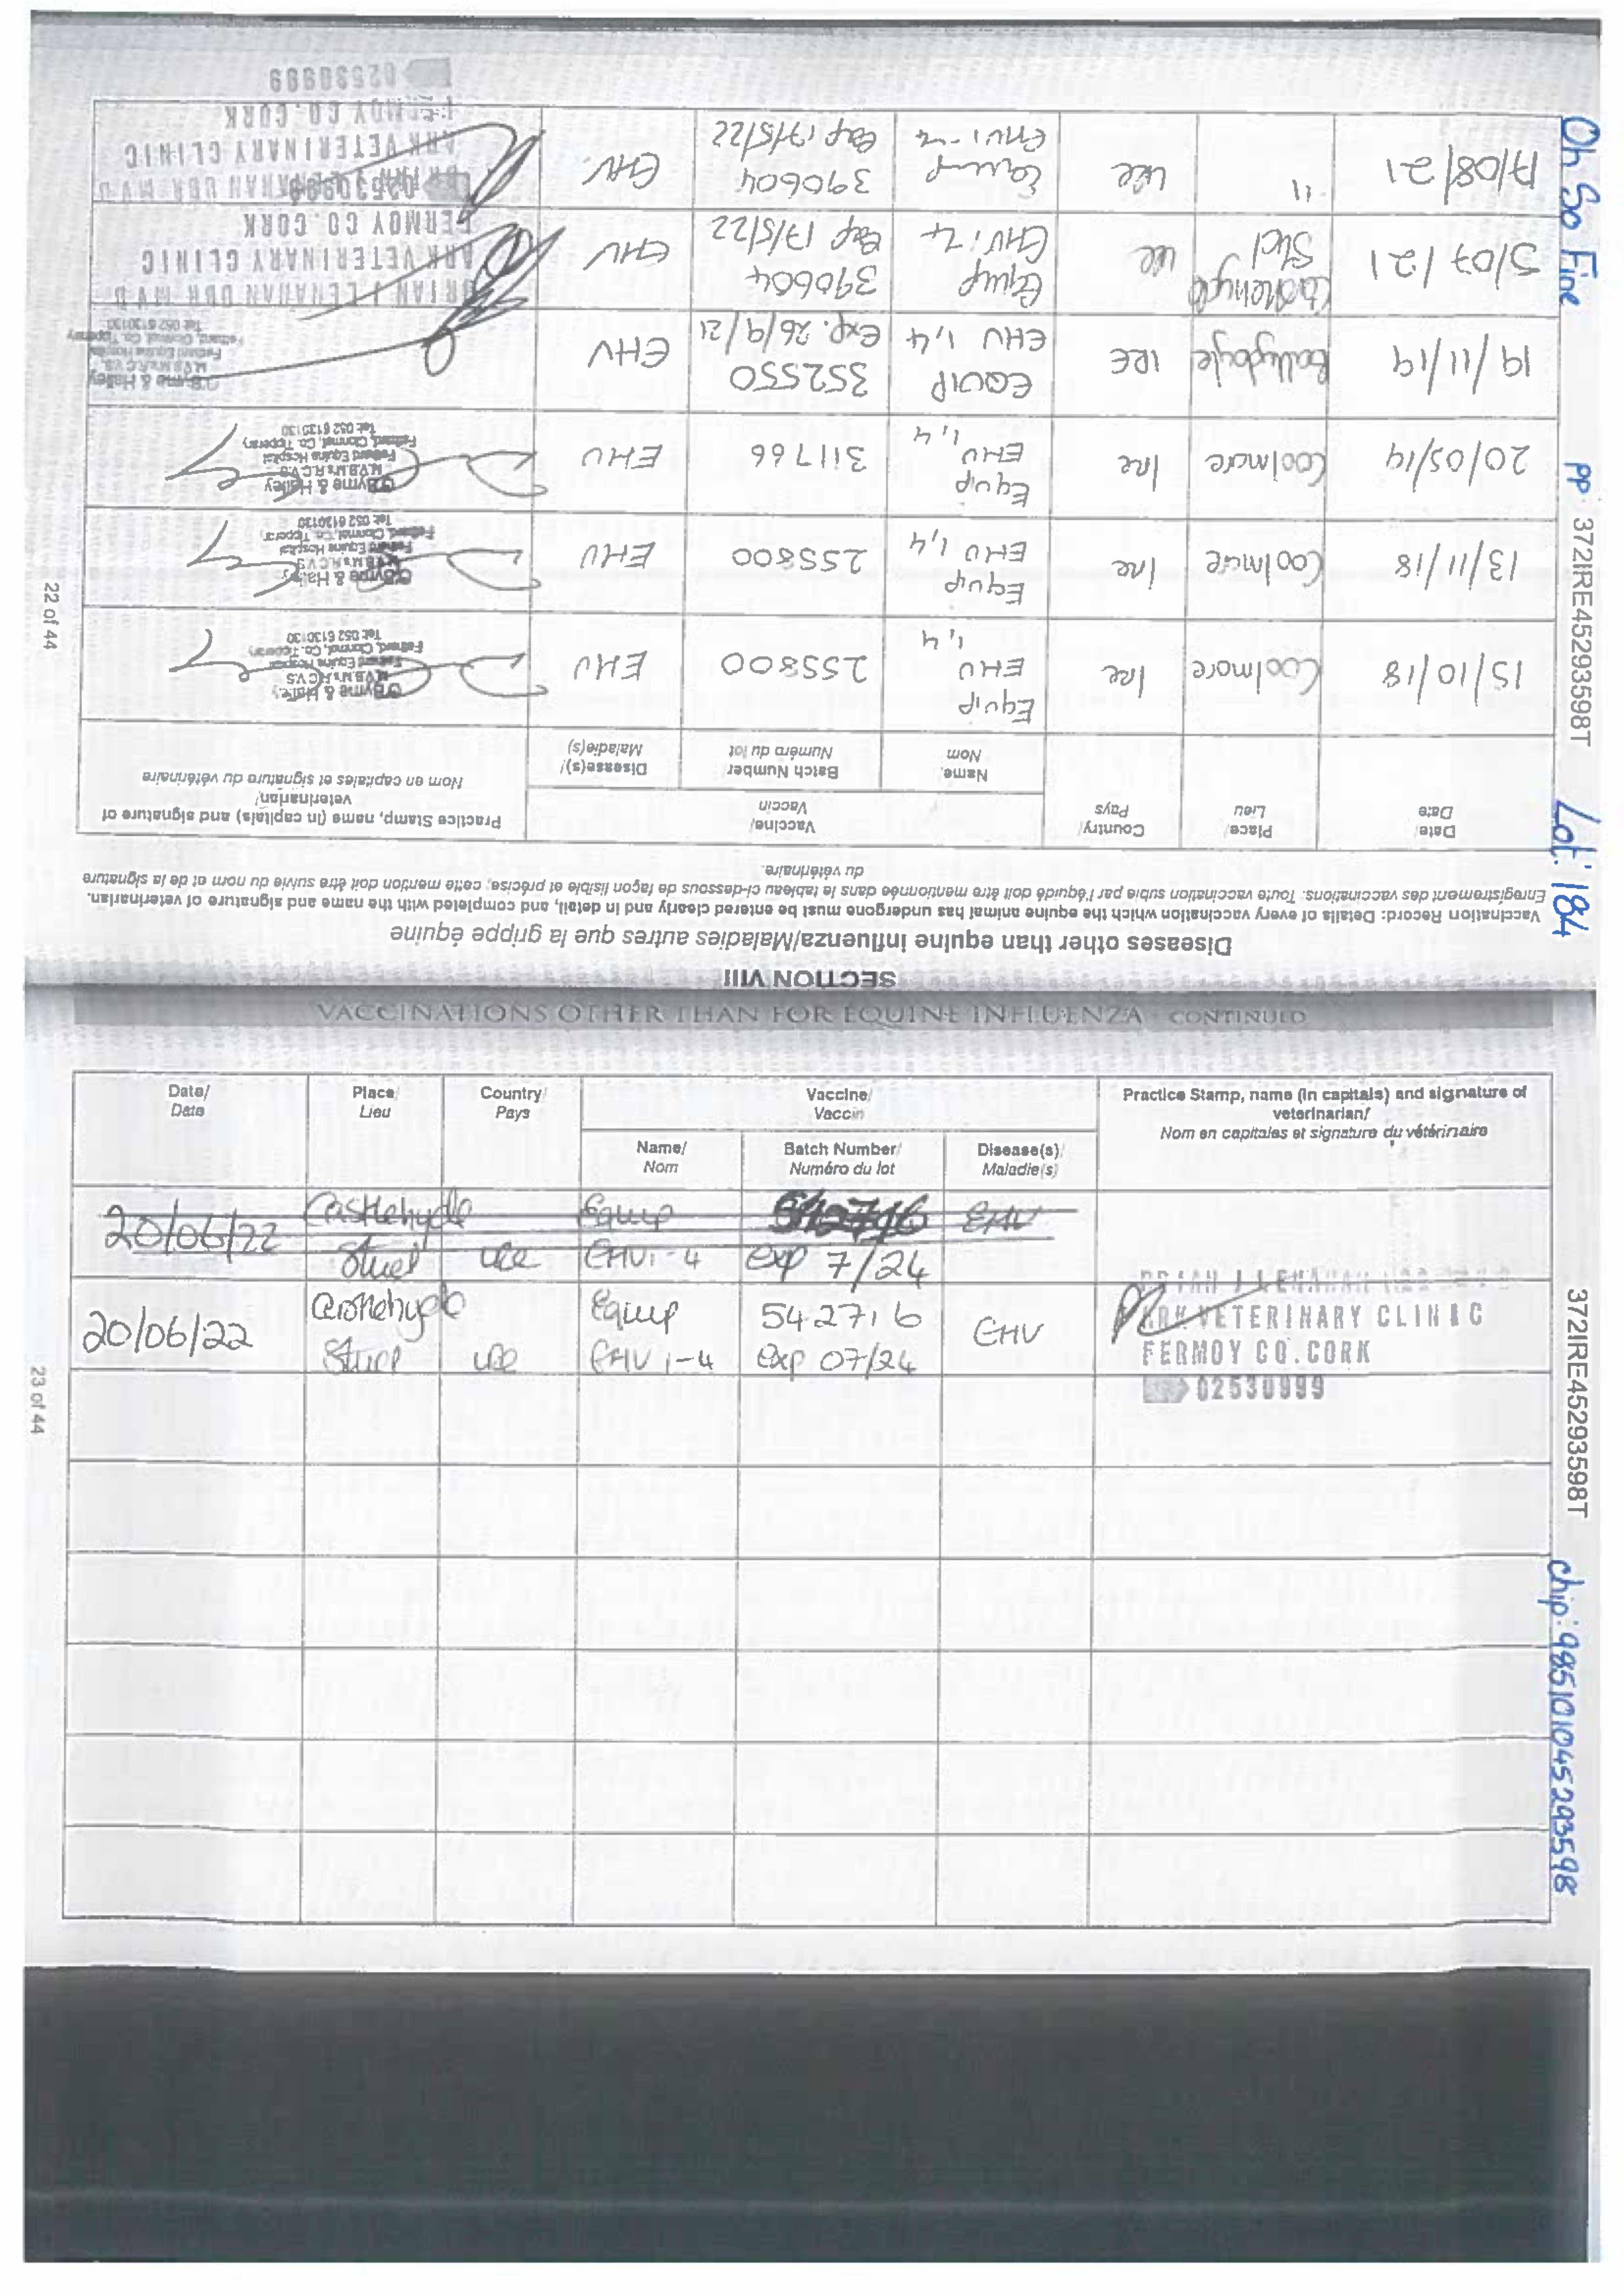 Oh So Fine
PP 372IRE45293598T
Lot: 184
SECTION VIII
Diseases other than equine influenza/Maladies autres que la grippe équine
Vaccination Record: Details of every vaccination which the equine animal has undergone must be entered clearly and in detail, and completed with the name and signature of veterinarian.
Enregistrement des vaccinations: Toute vaccination subie par l'équidé doit être mentionnée dans le tableau ci-dessous de façon lisible et précise; cette mention doit être suivie du nom et de la signature
du vétérinaire.
Date/ Date
Place/ Lieu
Country/ Pays
Vaccine/ Vaccin
Name/ Nom
Batch Number Numéro du lot
Disease(s)/ Maladie(s)
Practice Stamp, name (in capitals) and signature of
veterinarian/
Nom en capitales et signature du vétérinaire
15/10/18 Coolmore Ire Equip EHV 1,4 255800 EHV
O'Byrne & Halley
M.V.B. M's R.C.V.S
Fethard Equine Hospital
Fethard, Clonmel, Co. Tipperary
Tel: 052 6130130
13/11/18 Coolmore Ire Equip EHV 1,4 255800 EHV
O'Byrne & Halley
M.V.B. M's R.C.V.S
Fethard Equine Hospital
Fethard, Clonmel, Co. Tipperary
Tel: 052 6130130
20/05/19 Coolmore Ire Equip EHV 1,4 311766 EHV
O'Byrne & Halley
M.V.B. M's R.C.V.S
Fethard Equine Hospital
Fethard, Clonmel, Co. Tipperary
Tel: 052 6130130
19/11/19 Ballydoyle IRE EQUIP EHV 1,4 352550 Exp. 26/9/21 EHV
O'Byrne & Halley
M.V.B. M's R.C.V.S.
Fethard Equine Hospital
Fethard, Clonmel, Co. Tipperary
Tel: 052 6130130
5/07/21 Castlehyde Stud Ire Equip EHV 1-4 390604 Exp 17/5/22 EHV
BRIAN J LENAHAN DBR MVB
ARK VETERINARY CLINIC
FERMOY CO. CORK
02530999
17/08/21 " Ire Equip EHV 1-4 390604 Exp 17/5/22 EHV
BRIAN J LENAHAN DBR MVB
ARK VETERINARY CLINIC
FERMOY CO. CORK
02530999
22 of 44
VACCINATIONS OTHER THAN FOR EQUINE INFLUENZA - CONTINUED
Date/ Date
Place/ Lieu
Country/ Pays
Vaccine/ Vaccin
Name/ Nom
Batch Number/ Numéro du lot
Disease(s)/ Maladie(s)
Practice Stamp, name (in capitals) and signature of
veterinarian/
Nom en capitales et signature du vétérinaire
20/06/22 Castlehyde Stud Ire Equip EHV 1-4 exp 7/24 EHV
20/06/22 Castlehyde Stud Ire Equip EHV 1-4 542716 Exp 07/24 EHV
BRIAN J LENAHAN
ARK VETERINARY CLINIC
FERMOY CO. CORK
02530999
23 of 44
372IRE45293598T
chip: 985101045293598